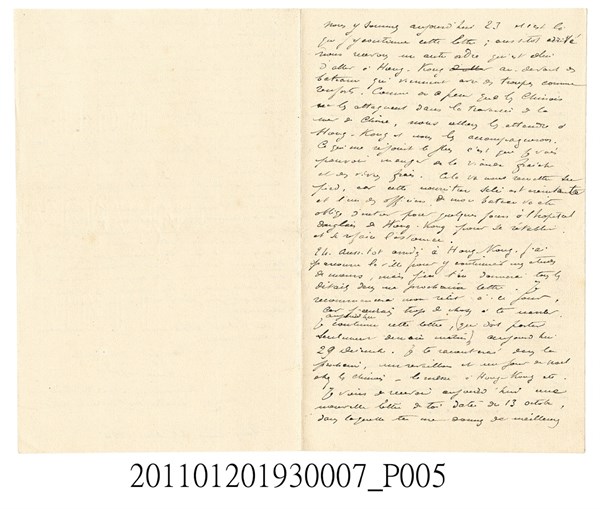 nous y sommes aujourd'hui 23 et c'est là
que je continue cette lettre ; aussitôt arrivé
nous recevons un autre ordre qui est celui
d'aller à Hong-Kong au devant des
bateaux qui viennent avec des troupes comme
renforts. Comme on a peur que les Chinois
les attaquent dans la traversée de la
mer de Chine, nous allons les attendre à
Hong-Kong et nous les accompagnerons.
Ce qui me réjouit le plus c'est que je vais
pouvoir manger de la viande fraîche
et des vivres frais. Cela va nous remettre sur
pied, car cette nourriture salée est
et l'un des officiers de mon bateau va être
obligé d'entrer pour quelques jours à l'hôpital
anglais de Hong-Kong pour se rétablir
et se refaire l'estomac.
24. Aussitôt arrivé à Hong-Kong, j'ai
parcouru la ville pour y
de mœurs, mais je t'en donnerai tous les
détails dans une prochaine lettre. Je
recommencerai mon récit à ce jour,
car j'aurais trop de choses à te raconter.
aujourd'hui
Je continue cette lettre, (qui doit partir
seulement demain matin) aujourd'hui
29 Décemb. Je te raconterai dans la
prochaine, un réveillon et un jour de Noël
chez les chinois - le même à Hong-Kong etc.
Je viens de recevoir aujourd'hui une
nouvelle lettre de toi datée du 13 octobre,
dans laquelle tu me donnes de meilleures
201101201930007_P005